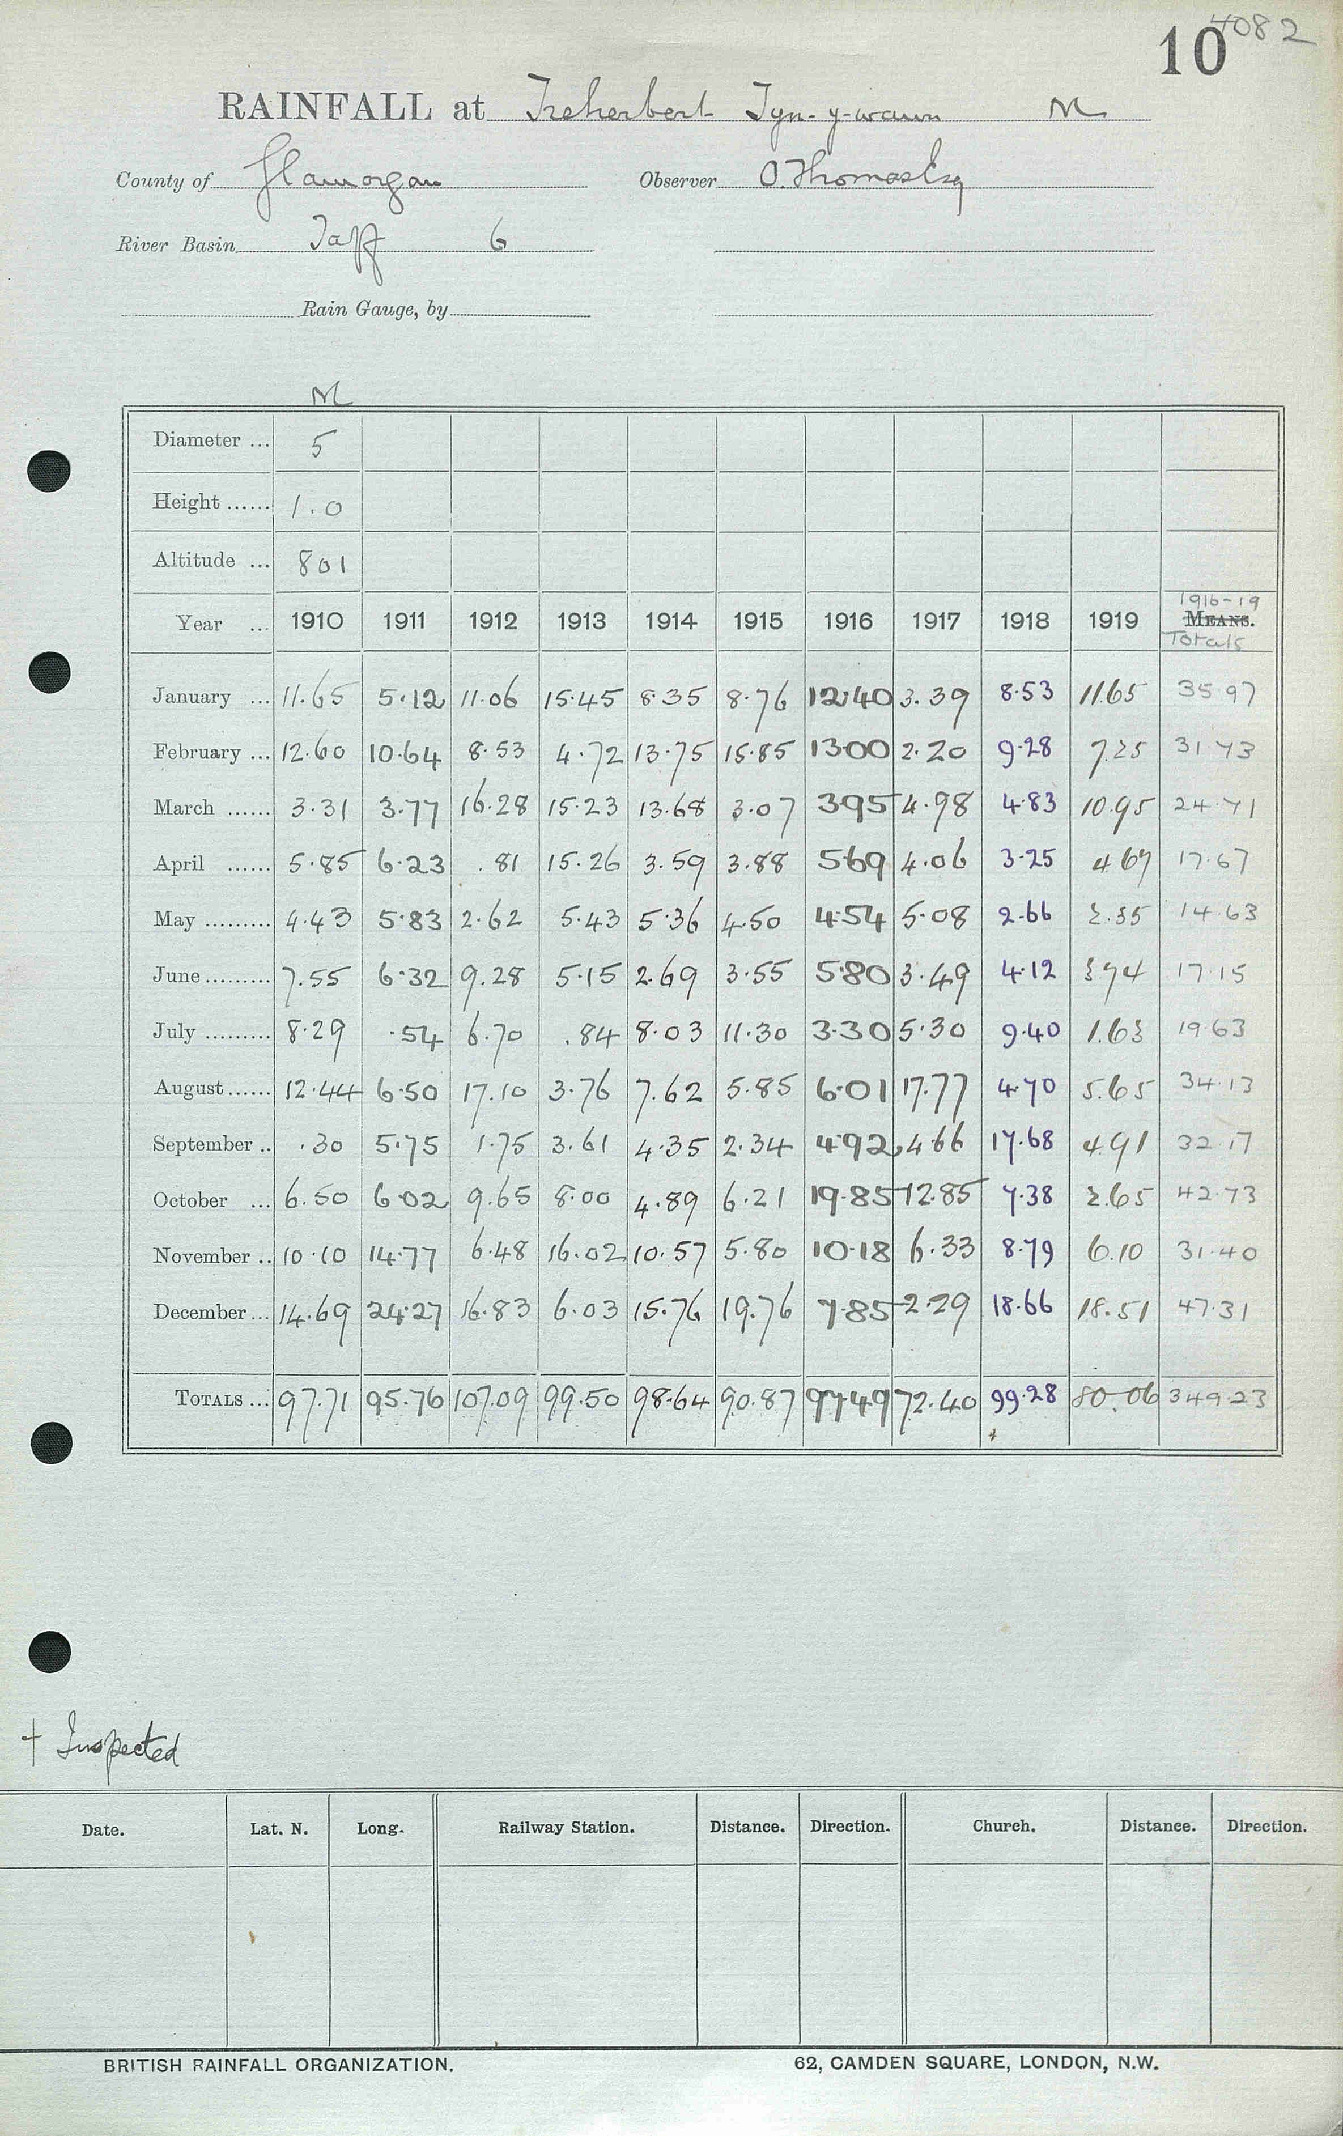 4082
10
RAINFALL at Treherbert Tyn-y-waun M
County of Glamorgan Observer O. Thomas Esq
River Basin Taff 6
Rain Gauge, by
M
Diameter ... 5
Height ...... 1.0
Altitude ... 801
1916-19
Year ... 1910 1911 1912 1913 1914 1915 1916 1917 1918 1919 MEANS.
Totals
January ... 11.65 5.12 11.06 15.45 8.35 8.76 12.40 3.39 8.53 11.65 35.97
February ... 12.60 10.64 8.53 4.72 13.75 15.85 13.00 2.20 9.28 7.25 31.73
March ...... 3.31 3.77 16.28 15.23 13.68 3.07 3.95 4.98 4.83 10.95 24.71
April ...... 5.85 6.23 .81 15.26 3.59 3.88 5.69 4.06 3.25 4.67 17.67
May ......... 4.43 5.83 2.62 5.43 5.36 4.50 4.54 5.08 2.66 2.35 14.63
June ......... 7.55 6.32 9.28 5.15 2.69 3.55 5.80 3.49 4.12 3.74 17.15
July ......... 8.29 .54 6.70 .84 8.03 11.30 3.30 5.30 9.40 1.63 19.63
August ...... 12.44 6.50 17.10 3.76 7.62 5.85 6.01 17.77 4.70 5.65 34.13
September .. .30 5.75 1.75 3.61 4.35 2.34 4.92 4.66 17.68 4.91 32.17
October ... 6.50 6.02 9.65 8.00 4.89 6.21 19.85 12.85 7.38 2.65 42.73
November .. 10.10 14.77 6.48 16.02 10.57 5.80 10.18 6.33 8.79 6.10 31.40
December ... 14.69 24.27 16.83 6.03 15.76 19.76 7.85 2.29 18.66 18.51 47.31
TOTALS ... 97.71 95.76 107.09 99.50 98.64 90.87 97.49 72.40 99.28 80.06 349.23
+
+ Inspected
Date. Lat. N. Long. Railway Station. Distance. Direction. Church. Distance. Direction.
BRITISH RAINFALL ORGANIZATION. 62, CAMDEN SQUARE, LONDON, N.W.